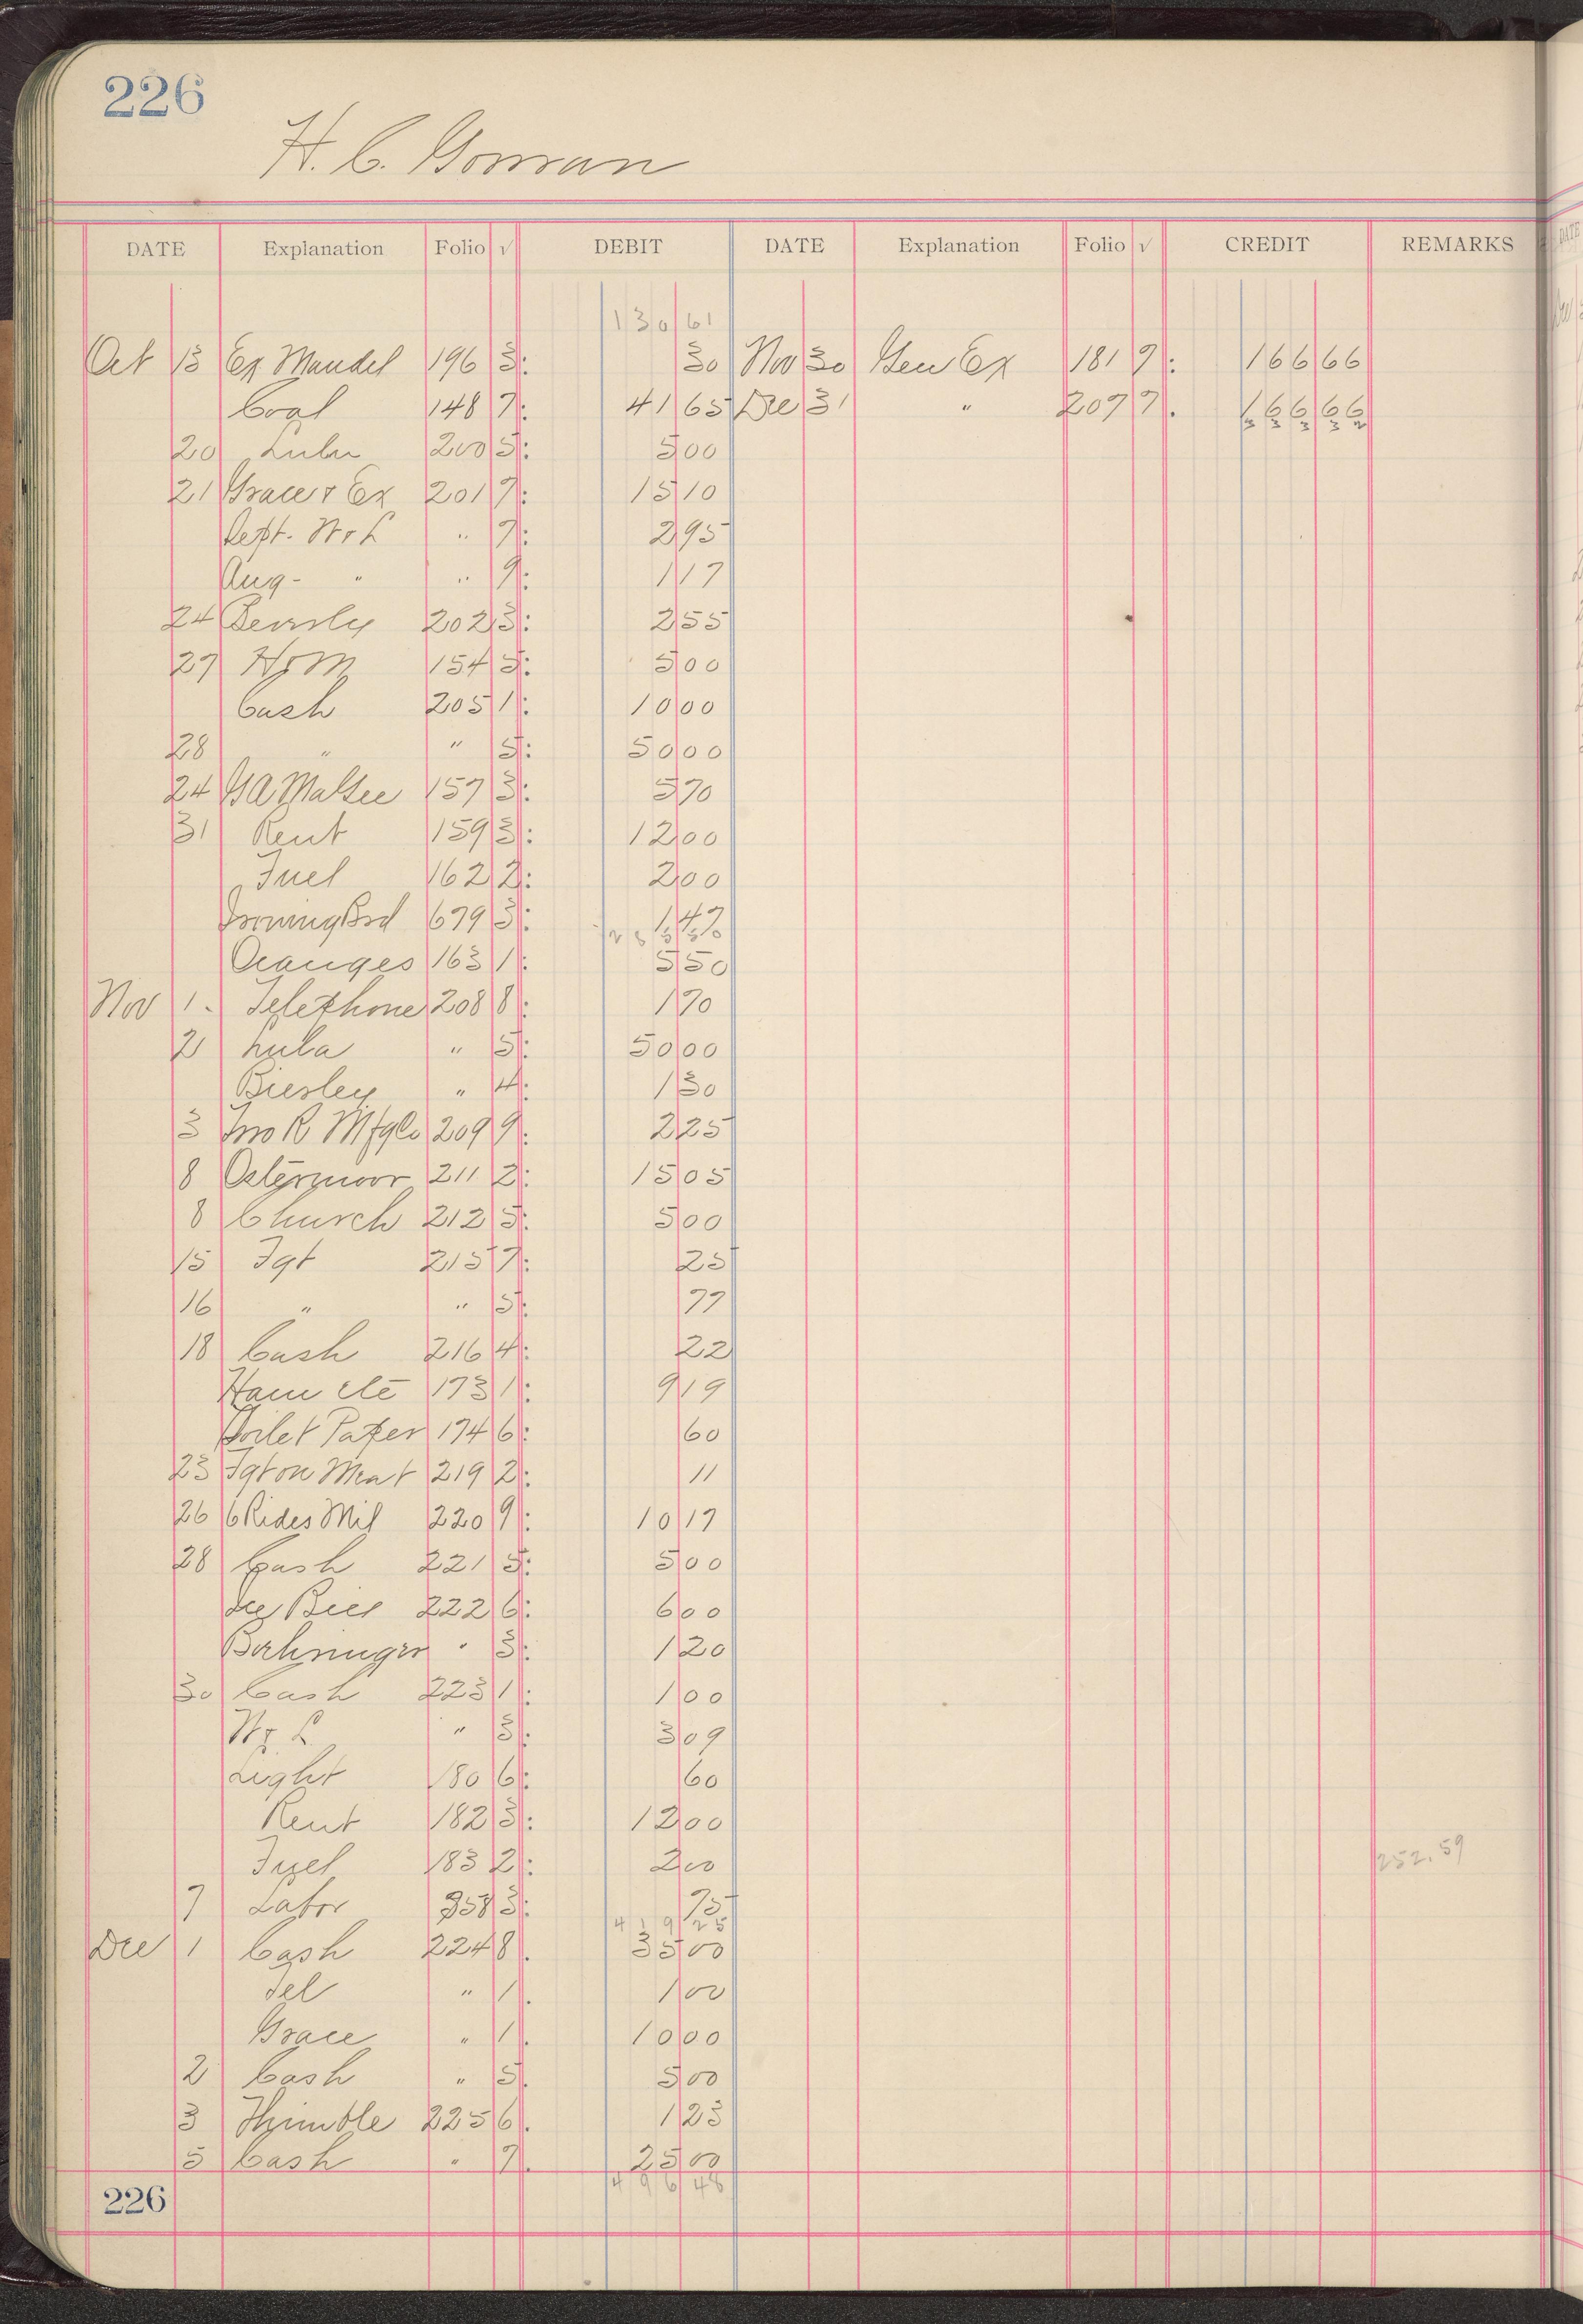 226
H. C. Goman
DATE Explanation Folio √ DEBIT DATE Explanation Folio √ CREDIT REMARKS
130 61
Oct 13 Ex Mandel 196 3: 30 Nov 30 Gen Ex 181 9: 166 66
Coal 148 7: 41 65 Dec 31 " 207 7. 166 66
333 32
20 Lulu 200 5: 5 00
21 Grace & Ex 201 7: 15 10
Sept. W & L " 7: 2 95
Aug - " " 9: 1 17
24 202 3: 2 55
27 154 5: 5 00
Cash 205 1: 10 00
28 " " 5: 50 00
24 157 3: 5 70
31 Rent 159 3: 12 00
Fuel 162 2: 2 00
Ironing Brd 679 3: 1 47
Oranges 163 1: 5 50
Nov 1 - Telephone 208 8: 1 70
2 Lula " 5: 50 00
Biesley " 4: 1 30
3 Jno R Mfg Co 209 9: 2 25
8 Ostermoor 211 2: 15 05
8 Church 212 5: 5 00
15 Fgt 215 7: 25
16 " " 5: 77
18 Cash 216 4: 22
Ham etc 173 1: 9 19
Toilet Paper 174 6: 60
23 Fgt on Meat 219 2: 11
26 6 Rides Mil 220 9: 10 17
28 Cash 221 5: 5 00
222 6: 6 00
" 3: 1 20
30 Cash 223 1: 1 00
W & L " 3: 3 09
Light 180 6: 60
Rent 182 3: 12 00
Fuel 183 2: 2 00
252.59
7 Labor 358 3: 75
419 25
Dec 1 Cash 224 8. 35 00
Tel " 1. 1 00
Grace " 1. 10 00
2 Cash " 5. 5 00
3 Thimble 225 6. 1 23
5 Cash " 7. 25 00
496 48
226